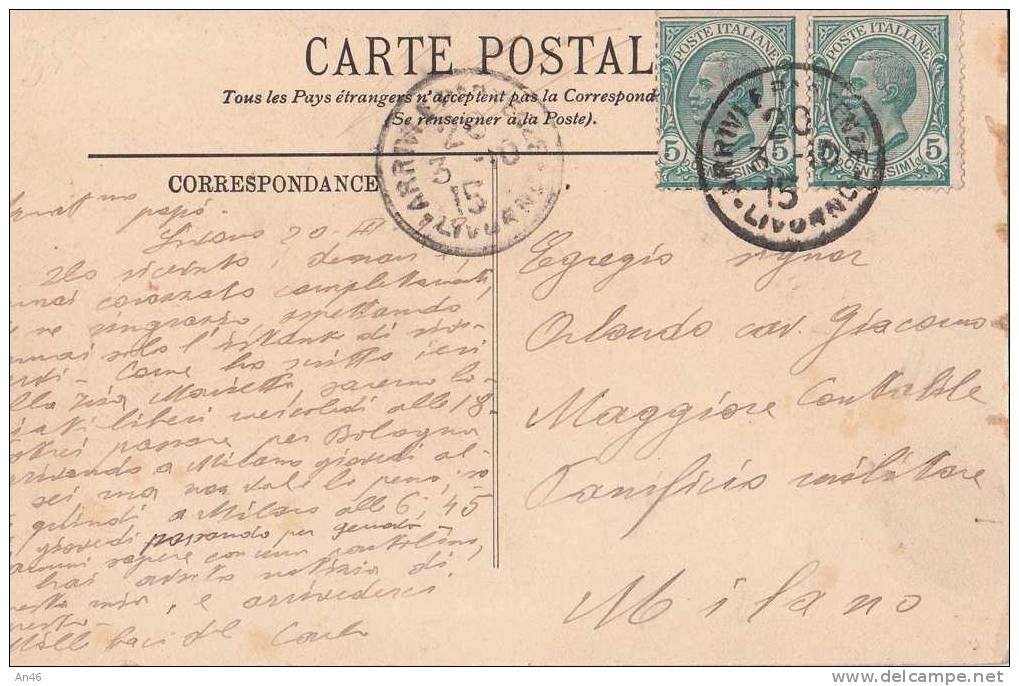 CARTE POSTAL
Tous les Pays étrangers n'acceptent pas la Correspond
Se renseigner à la Poste).
POSTE ITALIANE
5 5
POSTE ITALIANE
CENTESIMI 5
ARRIVI E PARTENZE
20
3 - 10
15
LIVORNO
ARRIVI E PARTENZE
20
3 - 10
15
LIVORNO
CORRESPONDANCE
papà
Livorno 20.
Ho ricevuto i denari,
corazzato completamente,
ne ringrazio aspettando
solo l'istante di
Come ho scritto ieri
zia saremo
liberi mercoledì alle 18
passare per Bologna
arrivando a Milano giovedì al
sei ma non val la pena; 
quindi a Milano alle 6,45
giovedì passando per Genova
sapere con una cartolina,
hai avuto notizia di
mia, e arrivederci
Mille baci dal Carlo
Egregio signor
Orlando cav. Giacomo
Maggiore Contabile
Panificio militare
Milano
An46
delcampe.net